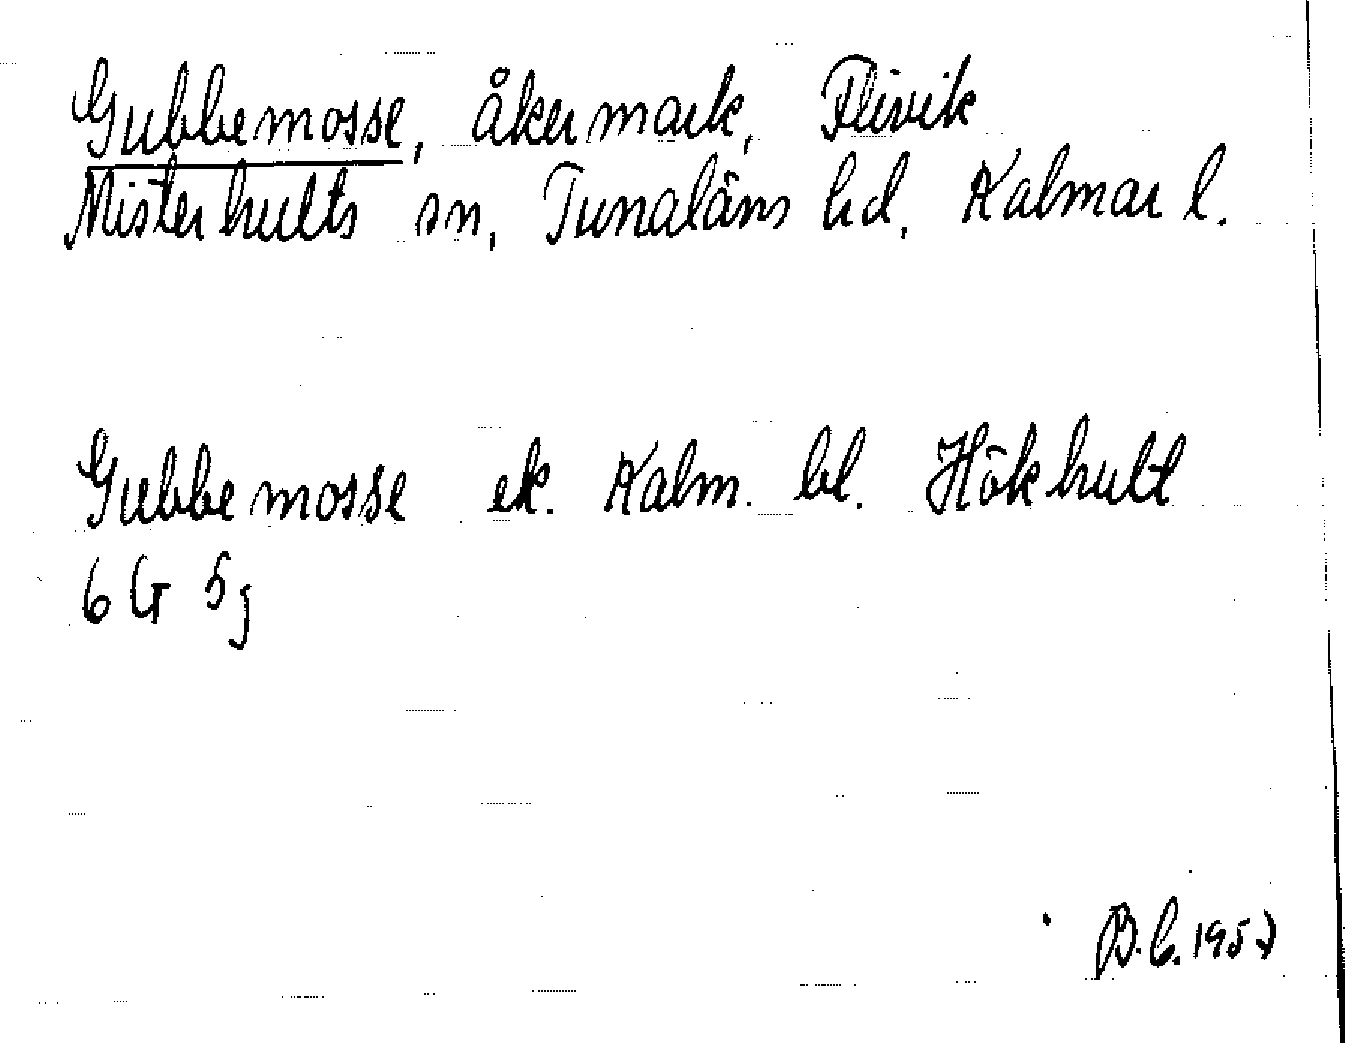 Gubbemosse, åkermark, Flivik
Misterhults sn, Tunaläns hd, Kalmar l.
Gubbemosse ek. Kalm. bl. Hökhult
6 G 5j
B.C. 1957